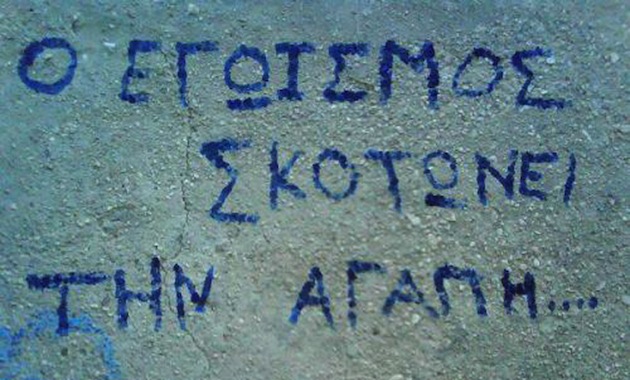 Ο ΕΓΩΙΣΜΟΣ
ΣΚΟΤΩΝΕΙ
ΤΗΝ ΑΓΑΠΗ....